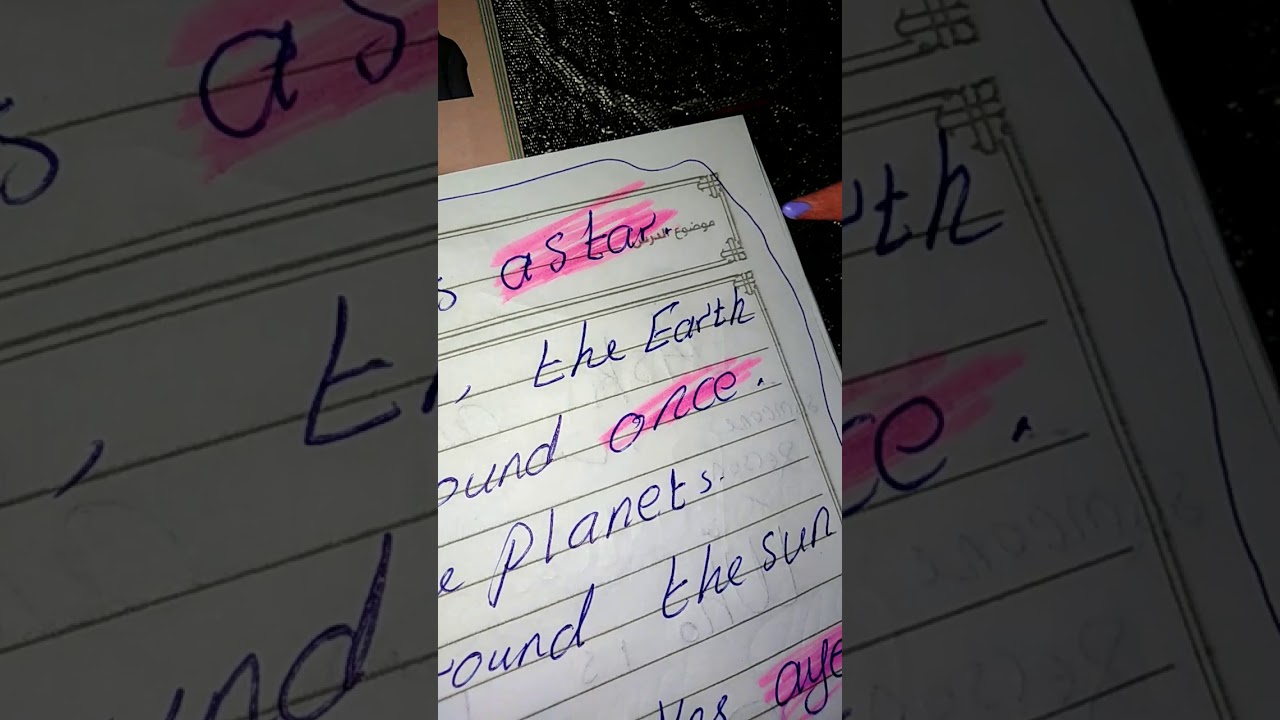 a star.
موضوع الدرس
, the Earth
ound once.
e planets.
round the sun